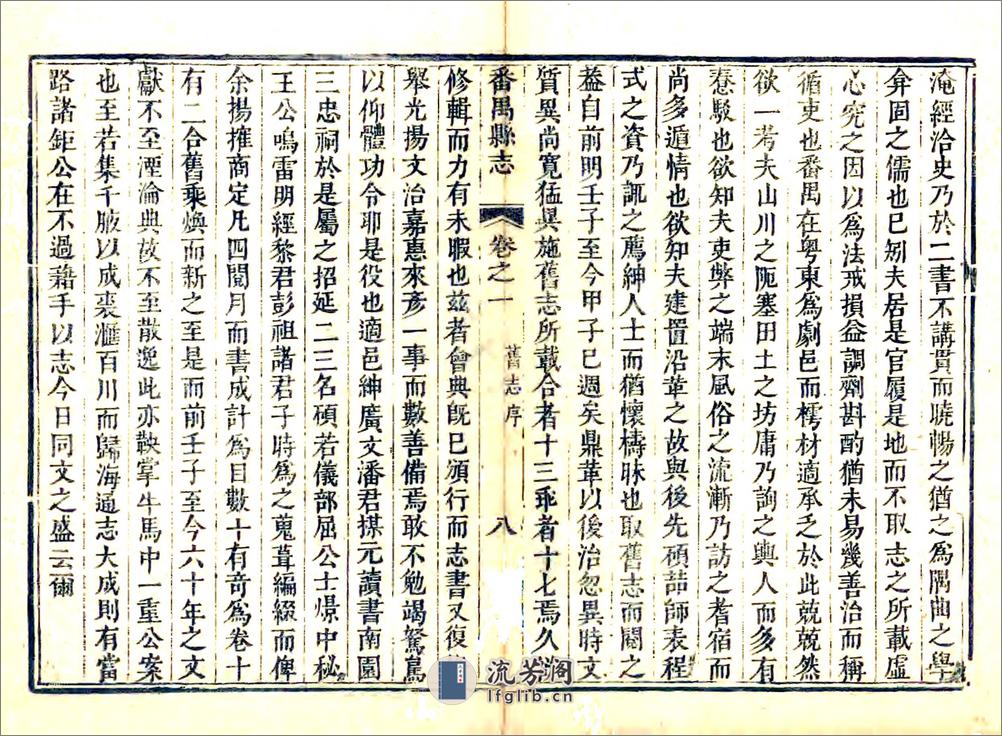 淹經洽史乃於二書不講貫而曉暢之猶之爲隅曲之學
弇固之儒也已矧夫居是官履是地而不取志之所載虛
心究之因以爲法戒損益調劑斟酌猶未易幾善治而稱
循吏也番禺在粤東爲劇邑而樗材適承乏於此兢兢然
欲一考夫山川之阨塞田土之坊庸乃詢之輿人而多有
舛駁也欲知夫吏弊之端末風俗之流漸乃訪之耆宿而
尚多遁情也欲知夫建置沿革之故與後先碩喆師表程
式之資乃諏之薦紳人士而猶懷檮昧也取舊志而閱之
葢自前明壬子至今甲子已週矣鼎革以後治忽異時文
質異尚寬猛異施舊志所載合者十三乖者十七焉久欲
番禺縣志
卷之一
舊志序
八
修輯而力有未暇也兹者會典旣已頒行而志書又復
舉光揚文治嘉惠來彥一事而數善備焉敢不勉竭駑鳥
以仰體功令耶是役也適邑紳廣文潘君楳元讀書南園
三忠祠於是屬之招延二三名碩若儀部屈公士㷡中秘
王公鳴雷明經黎君彭祖諸君子時爲之蒐葺編綴而俾
余揚搉商定凡四閱月而書成計爲目數十有奇爲卷十
有二合舊乘煥而新之至是而前壬子至今六十年之文
獻不至湮淪典故不至散逸此亦鞅掌牛馬中一重公案
也至若集千腋以成裘滙百川而歸海通志大成則有當
路諸鉅公在不過藉手以志今日同文之盛云爾
流芳阁
lfglib.cn